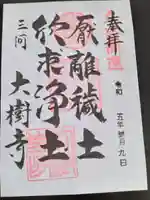 奉拝
令和五年 月九日
厭離穢土
欣求浄土
三河
大樹寺